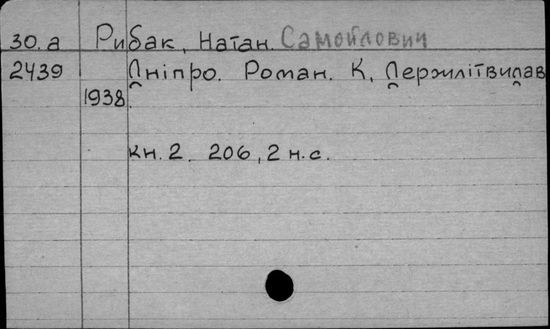 30.а Рибак, Натан. Самойлович
2439 Дніпро. Роман. К, Держлітвидав
1938.
кн. 2. 206, 2 н.с.